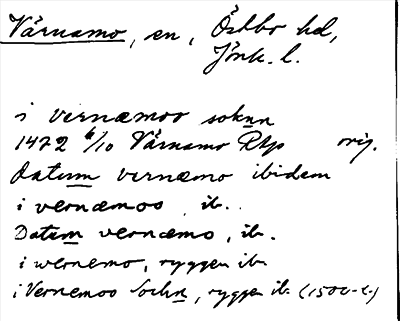 Värnamo, sn, Östbo hd,
Jönk. l.
i vernæmoo soknn
1472 6/10 Värnamo Rtp orig.
Datum vernæmo ibidem
i vernæmos, ib.
Datum vernæmo, ib.
i wernemo, ryggen ib.
i Vernemoo Sochn, ryggen ib. (1500-t.)